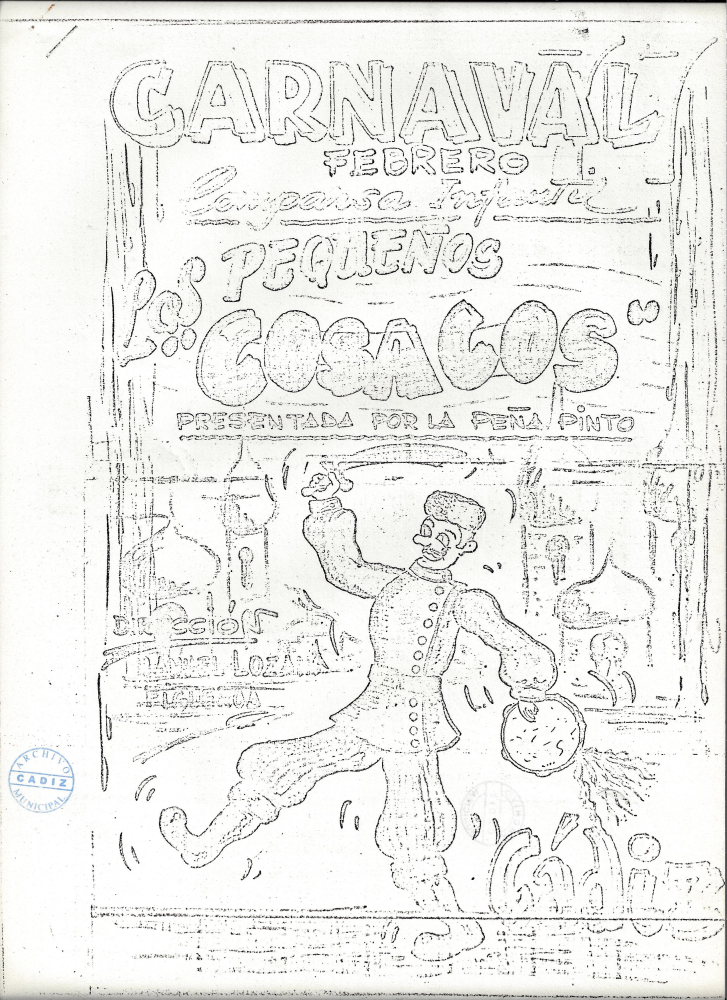 CARNAVAL
FEBRERO
Comparsa Infantil
Los PEQUEÑOS
"COSACOS"
PRESENTADA POR LA PEÑA PINTO
DIRECCIÓN
MANUEL LOZANO
Cádiz
ARCHIVO
CADIZ
MUNICIPAL